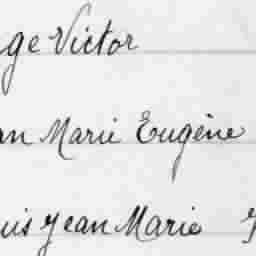 ge Victor
an Marie Eugène
uis Jean Marie